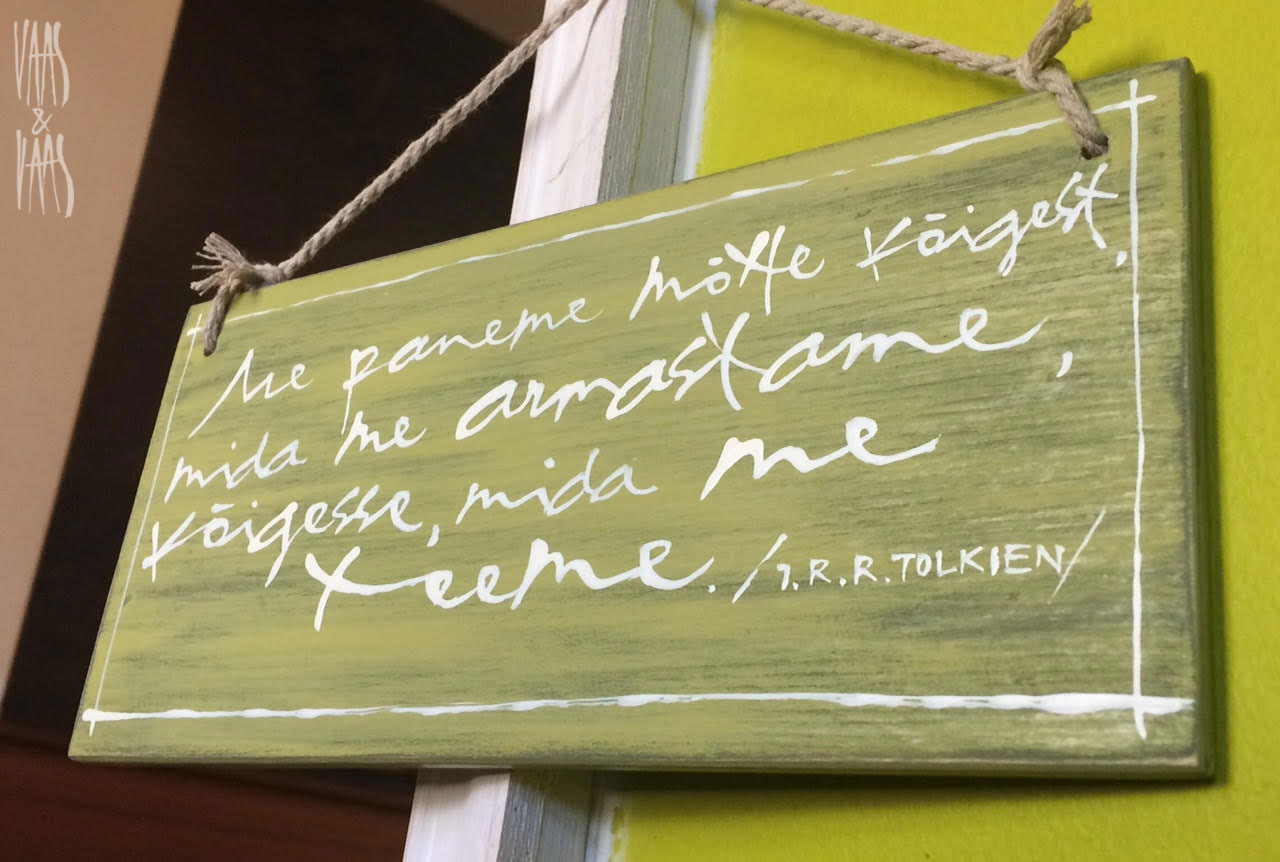 VAAS
&
VAAS
Me paneme mõtte kõigest,
mida me armastame,
kõigesse, mida me
teeme. /J.R.R.TOLKIEN/